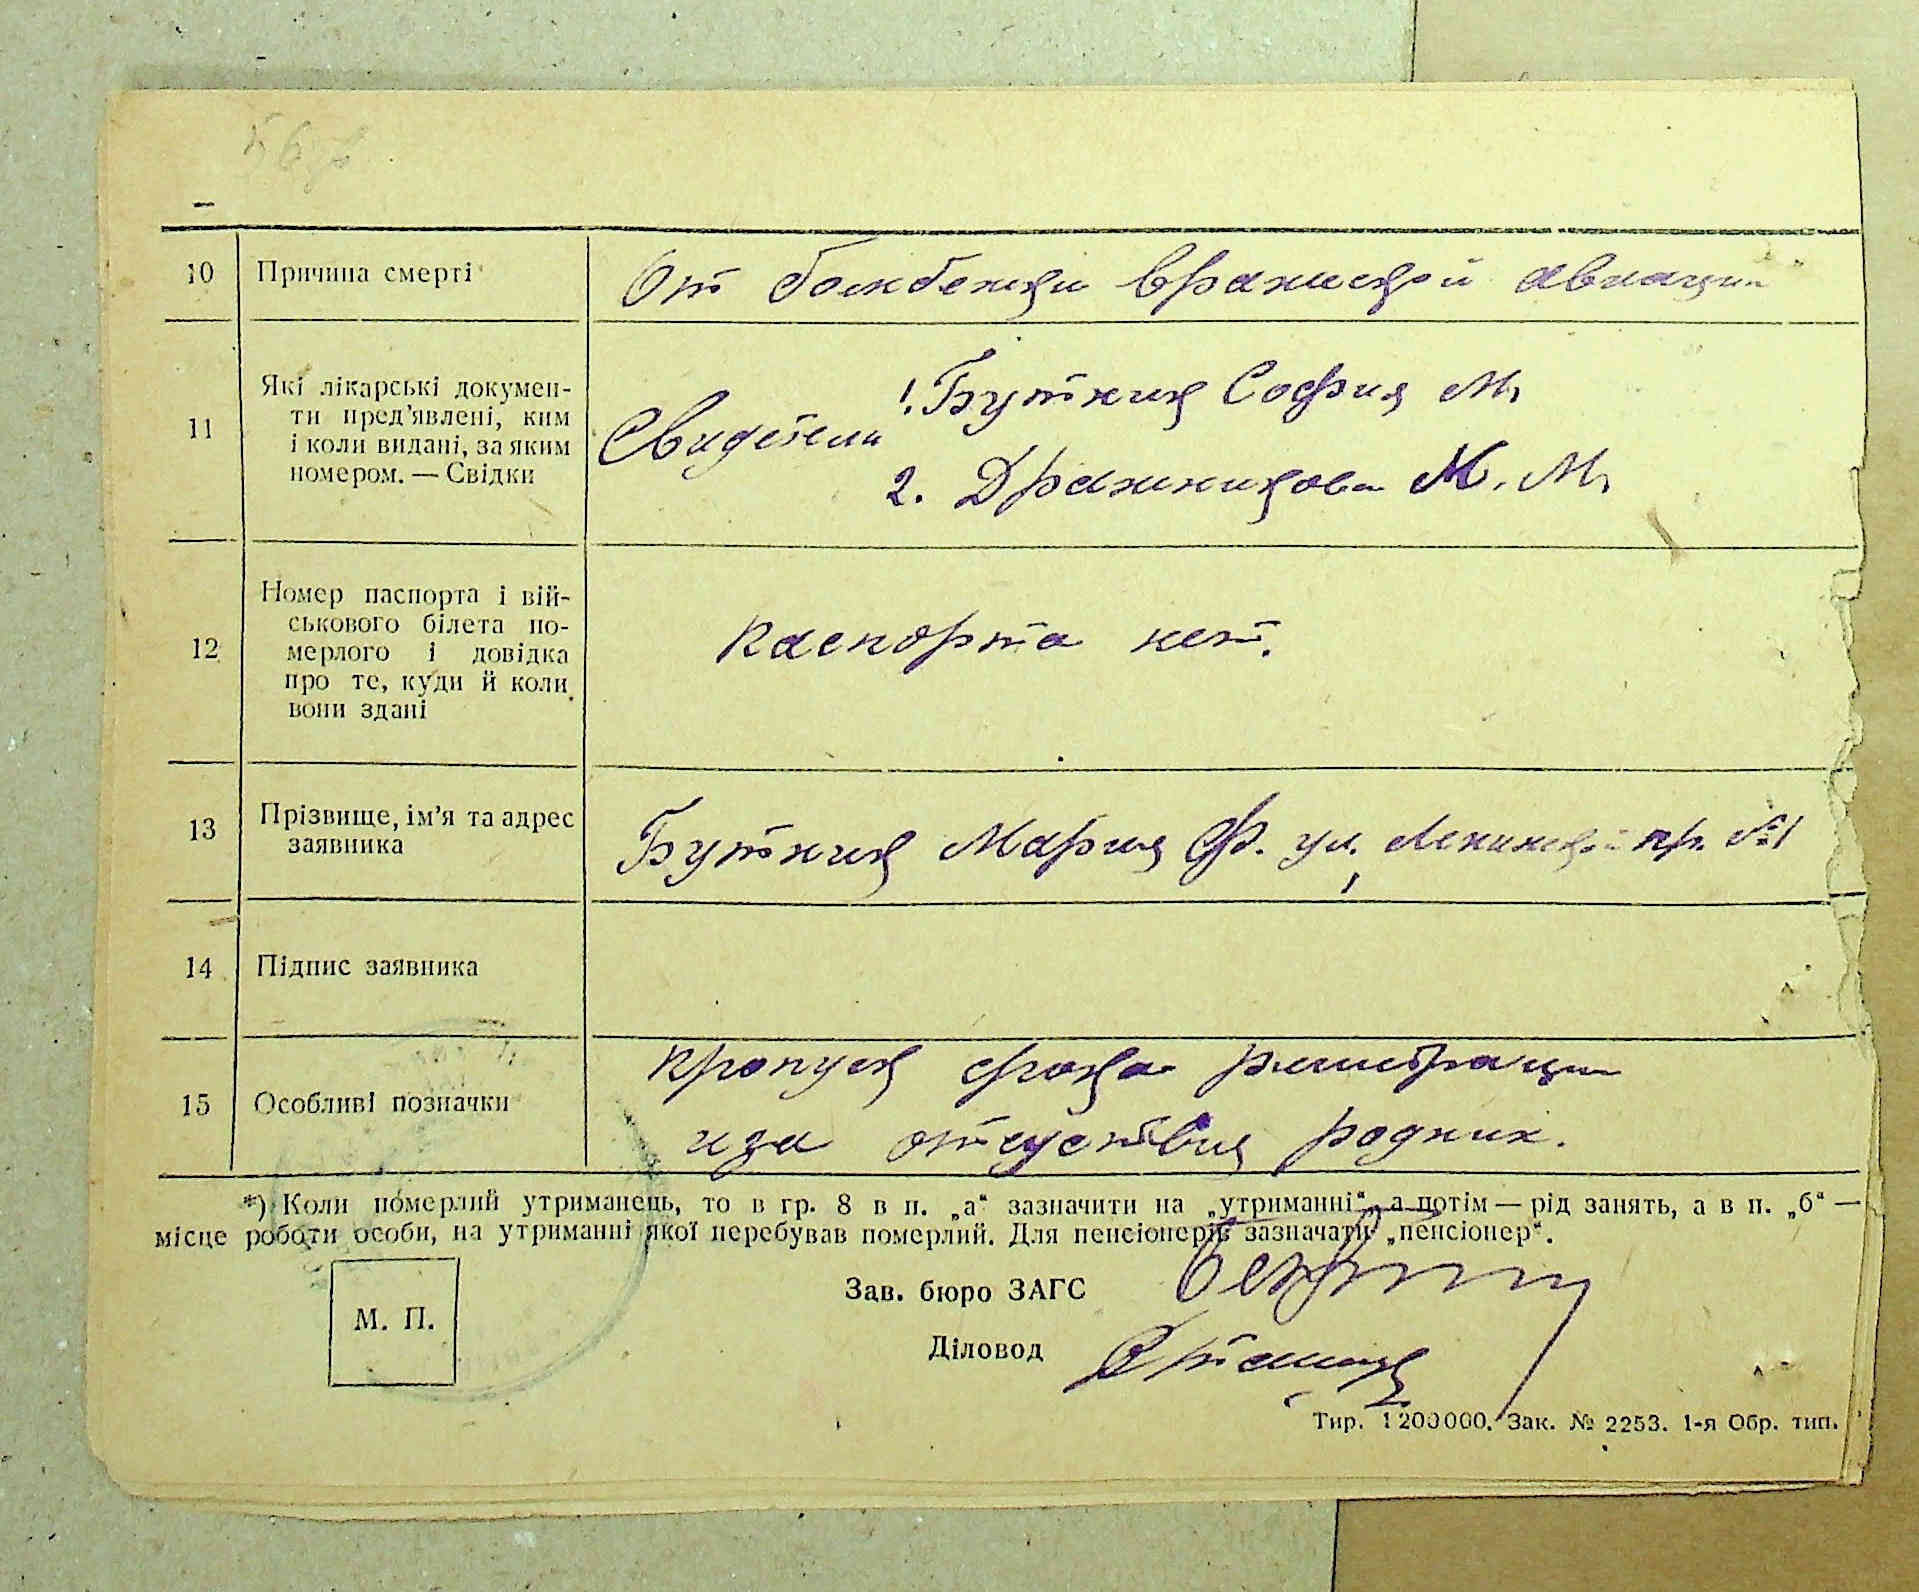 56
10 Причина смерті От бомбежки вражеской авиации
11 Які лікарські докумен-
ти пред'явлені, ким
і коли видані, за яким
номером. — Свідки
Свидетели 1. Буткия София М.
2. Дражникова М. М.
12 Номер паспорта і вій-
ськового білета по-
мерлого і довідка
про те, куди й коли
вони здані
паспорта нет.
13 Прізвище, ім'я та адрес
заявника
Буткия Мария Ф. ул. Ленинск. пр. №1
14 Підпис заявника
15 Особливі позначки
пропуск срока регистрации
иза отсуствия родних.
*) Коли померлий утриманець, то в гр. 8 в п. „а“ зазначити на „утриманні“, а потім — рід занять, а в п. „б“ —
місце роботи особи, на утриманні якої перебував померлий. Для пенсіонерів зазначати „пенсіонер“.
М. П.
Зав. бюро ЗАГС
Діловод
Тир. 1200000. Зак. № 2253. 1-я Обр. тип.